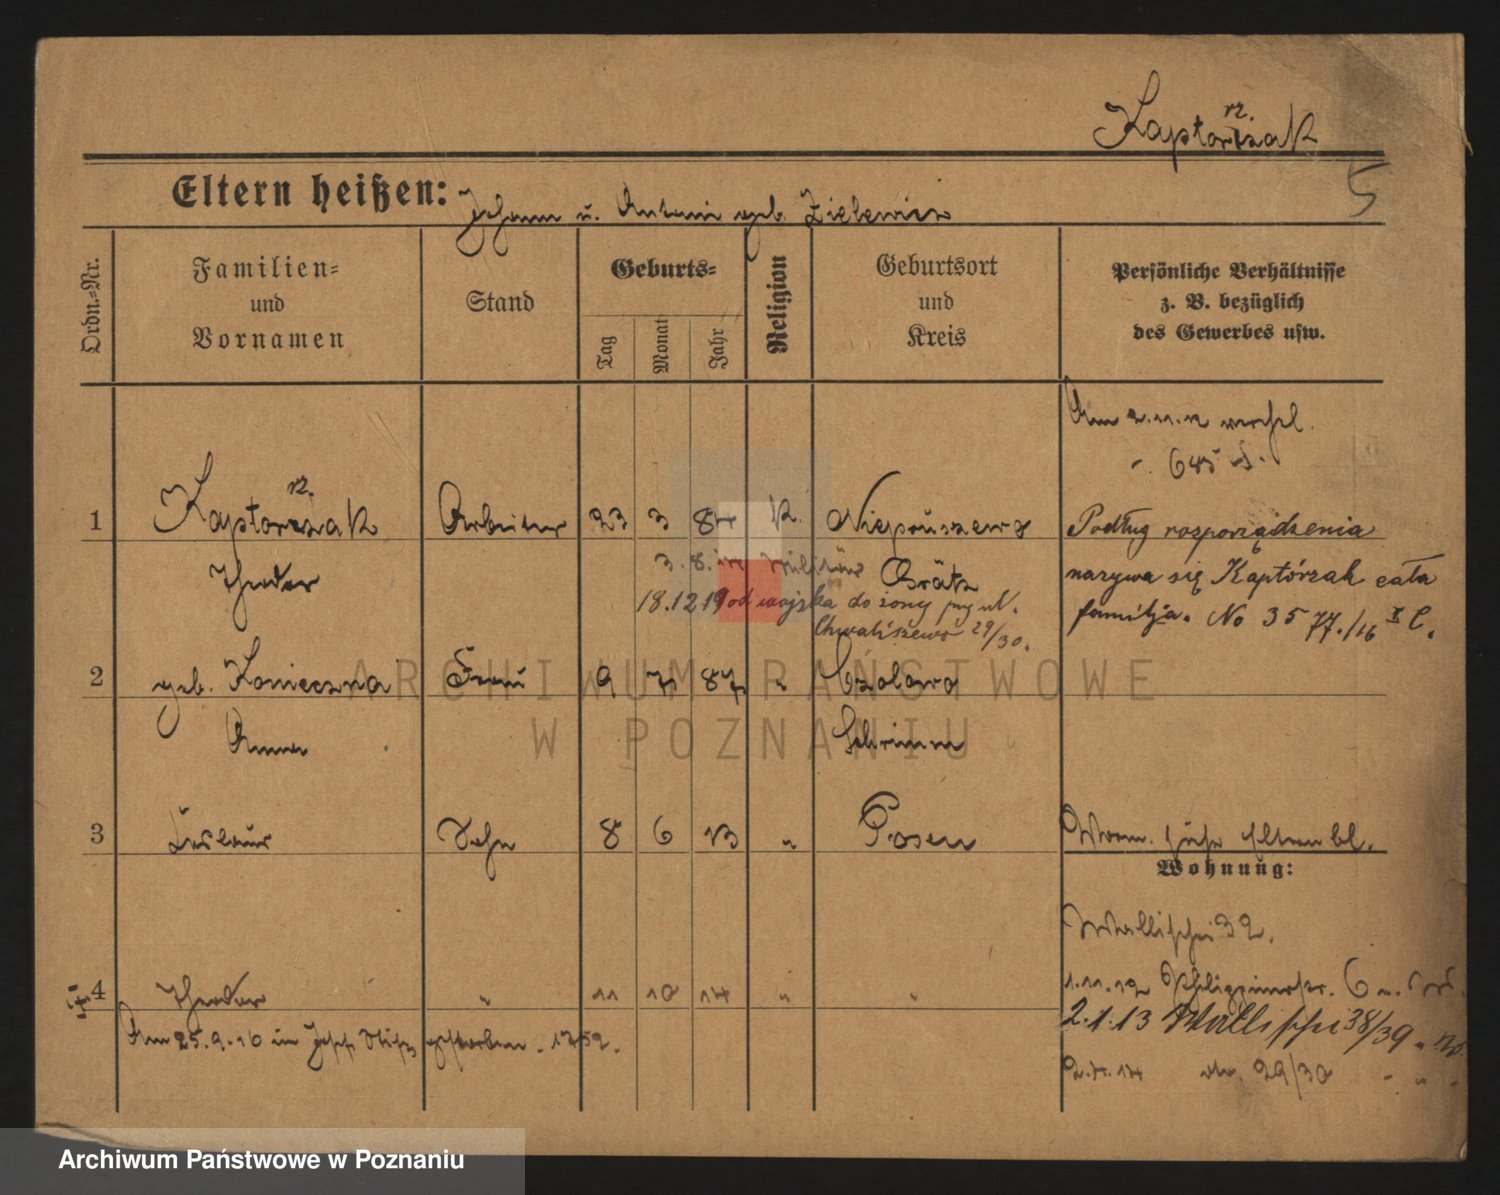 rz.
Kaptorzak
5
Eltern heißen: Johann u. Antoni geb. Zielewicz
Ordn.=Nr.
Familien=
und
Vornamen
Stand
Geburts=
Tag
Monat
Jahr
Religion
Geburtsort
und
Kreis
Persönliche Verhältnisse
z. B. bezüglich
des Gewerbes usw.
Am 2.11.12
685
1 Kaptorzak Arbeiter 23 3 84 K. Niepruszewo
rz.
Theodor Grätz
3.8. Militär
18.12.19 od wojska do żony przy ul.
Chwaliszewo 29/30.
Podług rozporządzenia
nazywa się Kaptórzak cała
familja. No 3577./16 I C.
2 geb. Konieczna Frau 9 7 87 " Czolowo
Anna Schrimm
3 Sohn 8 6 13 " Posen
Wohnung:
Wallischei 32.
4 Theodor " 11 10 14 " "
Am 25.9.16 im Josf. Stift gestorben. 1752.
1.11.12 6
2.1.13 Wallischei 38/39
2.4.14 29/30
ARCHIWUM PAŃSTWOWE
W POZNANIU
Archiwum Państwowe w Poznaniu